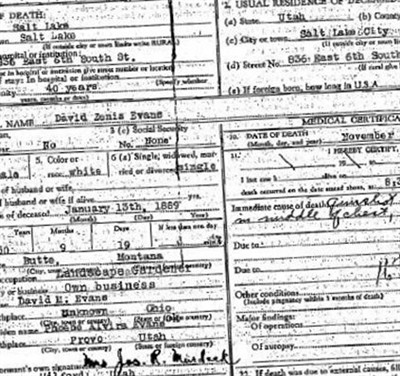 OF DEATH:
Salt Lake
Salt Lake
(If outside city or town limits write RURAL)
hospital or institution:
836 East 6th South St.
in hospital or institution give street number or location)
stay: In hospital or institution
(Specify whether
40 years
years, months or days)
2. USUAL RESIDENCE OF DECEASED
(a) State Utah (b) County
(c) City or town Salt Lake City
(If outside city or town
(d) Street No. 836 East 6th South
(If rural give
(e) If foreign born, how long in U.S.A
NAME David Zonis Evans
3 (c) Social Security
No No. None
5. Color or race white
6 (a) Single, widowed, married or divorced single
of husband or wife
husband or wife if alive yrs.
of deceased January 13th, 1889
(Month) (Day) (Year)
Years Months Days If less than one day
9 19
Butte, Montana
(City, town or county) (State or foreign country)
occupation Landscape Gardener
or business Own business
David E. Evans
Unknown Ohio
(State or foreign country)
name Phoebe Alvira Evans
Provo Utah
(City, town or county) (State or foreign country)
own signature Mrs Jos. R. Murdock
Utah
MEDICAL CERTIFICA
10. DATE OF DEATH November
(Month, day, and year)
11. I HEREBY CERTIFY,
I last saw h alive on
death occurred on the date stated above, at
Immediate cause of death Gunshot
in middle of chest,
Due to
Due to
Other conditions
(Include pregnancy within 3 months of death)
Major findings:
Of operations
Of autopsy
22. If death was due to external causes, fill